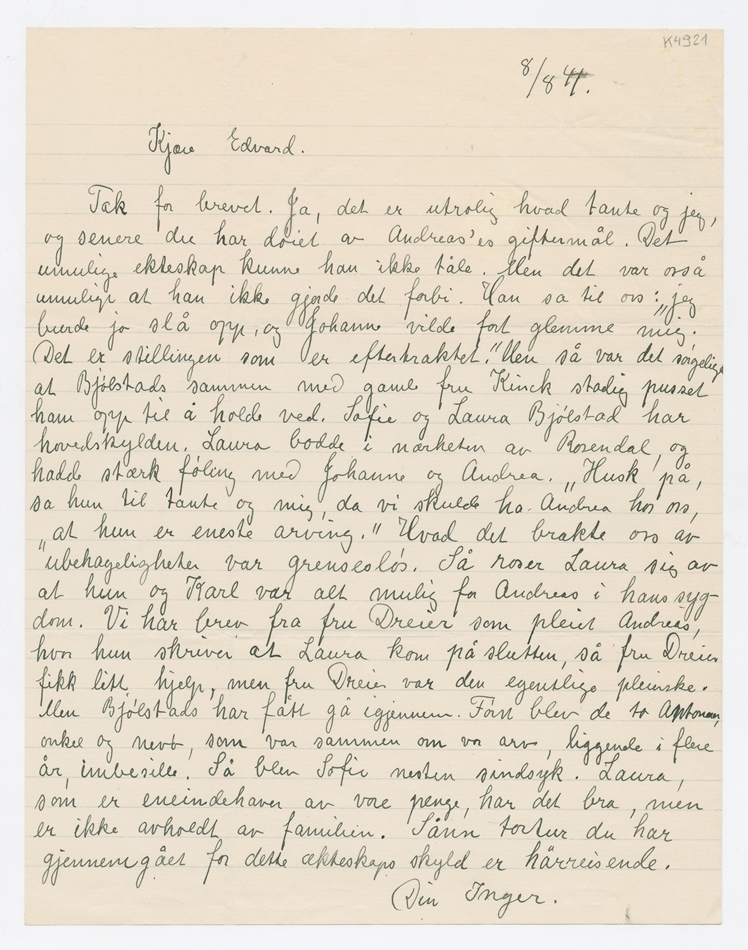 K4921
8/8 41.
Kjære Edvard.
Tak for brevet. Ja, det er utrolig hvad tante og jeg,
og senere du har døiet av Andreas'es giftermål. Det
umulige ekteskap kunne han ikke tåle. Men det var også
umulige at han ikke gjorde det forbi. Han sa til os: „jeg
burde jo slå opp, og Johanne vilde fort glemme mig.
Det er stillingen som er eftertraktet." Men så var det sørgelige
at Bjølstads sammen med gamle fru Kinck stadig pusset
ham opp til å holde ved. Sofie og Laura Bjølstad har
hovedskylden. Laura bodde i nærheten av Rosendal, og
hadde stærk føling med Johanne og Andrea. „Husk på,
sa hun til tante og mig, da vi skulde ha Andrea hos os,
„at hun er eneste arving." Hvad det brakte os av
ubehageligheter var grenseløs. Så roser Laura sig av
at hun og Karl var alt mulig for Andreas i hans syg-
dom. Vi har brev fra fru Dreier som pleiet Andreas,
hvor hun skriver at Laura kom på slutten, så fru Dreier
fikk litt hjelp, men fru Dreier var den egentlige pleierske.
Men Bjølstads har fått gå igjennem. Først blev de to Antoner,
onkel og nevø, som var sammen om vor arv, liggende i flere
år, imbesille. Så blev Sofie nesten sindsyk. Laura,
som er eneindehaver av vore penge, har det bra, men
er ikke avholdt av familien. Sånn tortur du har
gjennemgået for dette ækteskaps skyld er hårreisende.
Din Inger.